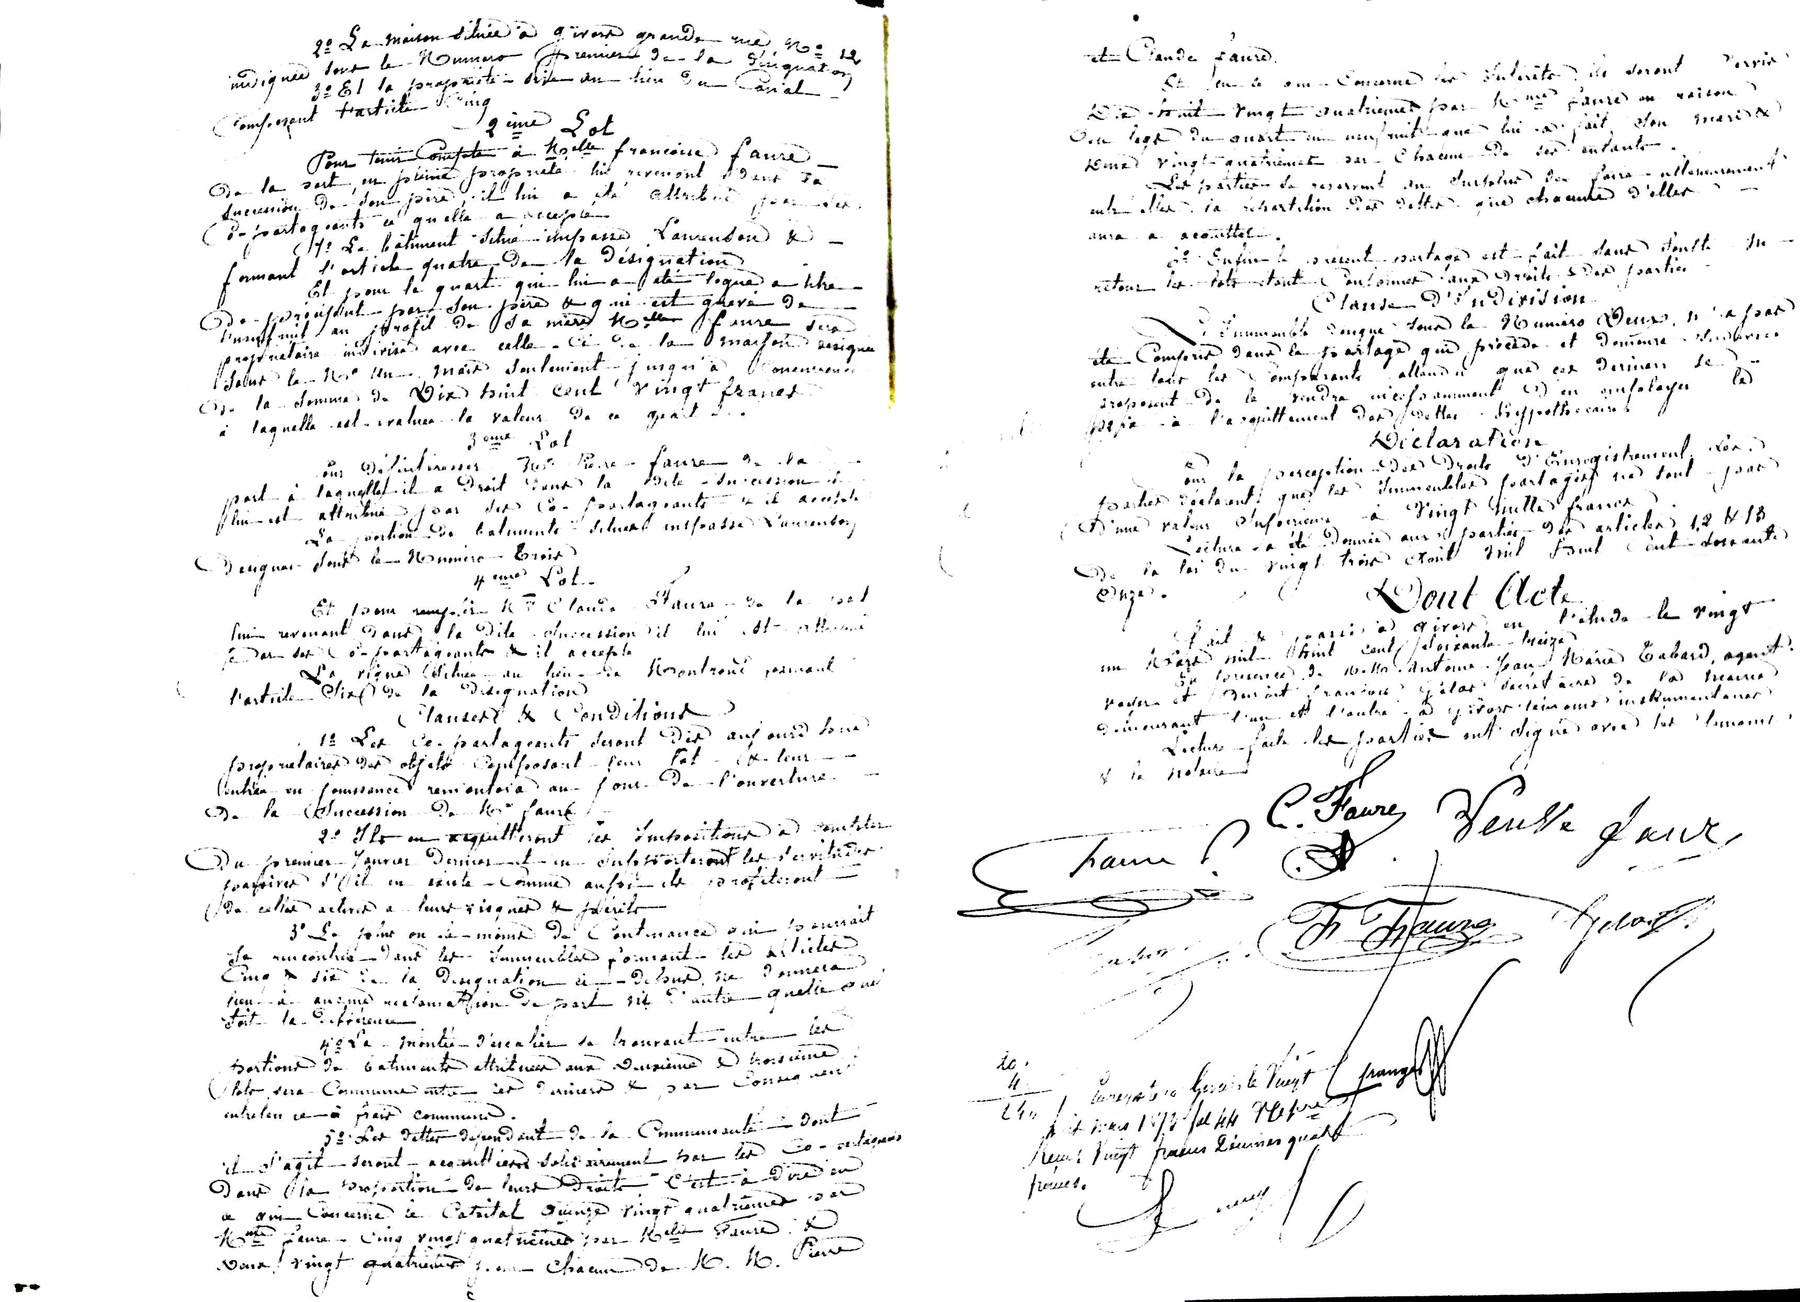 2º La maison située à Givors grande rue, Nº 12
indiquée sous le Numéro premier de la désignation
3º Et la propriété sise au lieu du Canal
Composant l'article Cinq
2ème Lot
Pour tenir Compte à Melle françoise faure
De la part, en pleine propriété lui revenant dans la
succession de son père, il lui a été attribué par ses
Co-partageants ce qu'elle a accepté
1º Le bâtiment situé impasse Laurenson &
formant l'article quatre de la désignation
Et pour le quart qui lui a été légué à titre
De préciput par son père & qui est grevé de
l'usufruit au profit de sa mère Melle faure sera
propriétaire indivise avec celle-ci de la maison désignée
sous le Nº un mais seulement jusqu'à concurrence
De la somme de Dix huit cent vingt francs
à laquelle est évaluée la valeur de ce quart
3eme Lot
Pour Désintéresser Mr Pierre faure de la
part à laquelle il a Droit dans la dite succession il
lui est attribué par ses Co-partageants & il accepte
La portion de bâtiments située impasse Laurenson
Désignée sous le Numéro Trois
4eme Lot
Et pour remplir Mr Claude Faure de la part
lui revenant dans la Dite succession il lui est attribué
par ses Co-partageants & il accepte
La vigne située au lieu de Montrond formant
l'article Six de la Désignation
Clauses & Conditions
1º Les Co-partageants seront dès aujourd'hui
propriétaires des objets composant leur lot & leur
entrée en jouissance remontera au jour de l'ouverture
De la Succession de Mr faure
2º Ils en acquitteront les Impositions à compter
Du premier Janvier Dernier et en supporteront les servitudes
passives s'il en existe Comme aussi ils profiteront
de celles actives à leurs risques & périls
3º Le plus ou le moins de Contenance qui pourrait
se rencontrer dans les Immeubles formant les articles
Cinq & six de la désignation ci-dessus, ne donnera
lieu à aucune réclamation de part ni d'autre quelle que
soit la différence
4º La montée d'escalier se trouvant entre les
portions de bâtiments attribuées aux Deuxième & troisième
Lots sera Commune entre ces derniers & par Conséquent
entretenue à frais communs.
5º Les dettes dépendant de la Communauté dont
il s'agit seront acquittées solidairement par les Co-partageants
Dans la proportion de leurs Droits C'est à Dire en
ce qui Concerne le Capital Quinze vingt quatrièmes par
Mme faure Cinq vingt quatrièmes par Melle Faure &
Deux vingt quatrièmes par Chacun de M. M. Pierre
et Claude faure.
Et en ce qui Concerne les Intérêts ils seront servis
Dix-huit vingt quatrièmes par Mme faure en raison
Du legs du quart en usufruit que lui a fait son mari &
Deux vingt quatrièmes par Chacun de ses enfants.
Les parties se réservent au surplus de faire ultérieurement
entr'elles la répartition des dettes que chacune d'elles
aura à acquitter.
6º Enfin le présent partage est fait sans soulte ni
retour les lots étant Conformes aux Droits des parties
Clause D'Indivision
L'Immeuble désigné sous le Numéro Deux, n'a pas
été Compris dans le partage qui précède et demeure indivis
entre tous les Comparants attendu que ces derniers se
proposent de le vendre incessamment & d'en employer le
prix à l'acquittement des dettes hypothécaires
Déclaration
Pour la perception des Droits d'Enregistrement les
parties déclarent que les Immeubles partagés ne sont pas
D'une valeur supérieure à Vingt mille francs
Lecture a été donnée aux parties des articles 12 & 13
De la loi du vingt trois Août mil huit Cent soixante
Onze.
Dont Acte
Fait & passé à Givors en l'étude le vingt
un Mars mil huit cent soixante treize
En présence de M.M. Antoine Jean Marie Tabard, agent
voyer et Benoit François Gelas secrétaire de la mairie
demeurant l'un et l'autre à Givors témoins instrumentaires
Lecture faite les parties ont signé avec les témoins
& le notaire
C. Faure Veuve faure
Faure P.
F. Faure Gelas
20.
4
Enregistré à Givors le Vingt
huit mars 1873 fo 44
Reçu Vingt francs Décimes quatre
francs.